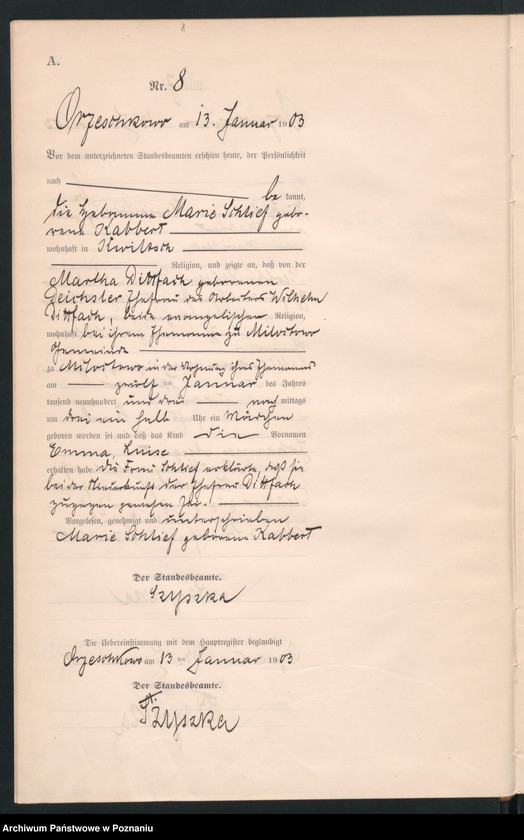 8
A.
Nr. 8
Orzeschkowo am 13. Januar 1903
Vor dem unterzeichneten Standesbeamten erschien heute, der Persönlichkeit
nach be kannt,
die Hebamme Marie Schlief gebo-
rene Kabbert
wohnhaft in Kwiltsch
Religion, und zeigte an, daß von der
Martha Dittfach geborenen
Deichsler Ehefrau des Arbeiters Wilhelm
Dittfach, beide evangelischen Religion,
wohnhaft bei ihrem Ehemanne zu Milostowo
Gemeinde
zu Milostowo in der Wohnung ihres Ehemannes
am zwölf ten Januar des Jahres
tausend neunhundert und drei nach mittags
um drei ein halb Uhr ein Mädchen
geboren worden sei und daß das Kind die Vornamen
Emma, Luise
erhalten habe. Die Frau Schlief erklärte, daß sie
bei der Niederkunft der Ehefrau Dittfach
zugegen gewesen sei.
Vorgelesen, genehmigt und unterschrieben
Marie Schlief geborene Kabbert
Der Standesbeamte.
Szyszka
Die Uebereinstimmung mit dem Hauptregister beglaubigt
Orzeschkowo am 13 ten Januar 1903
Der Standesbeamte.
Szyszka
Archiwum Państwowe w Poznaniu